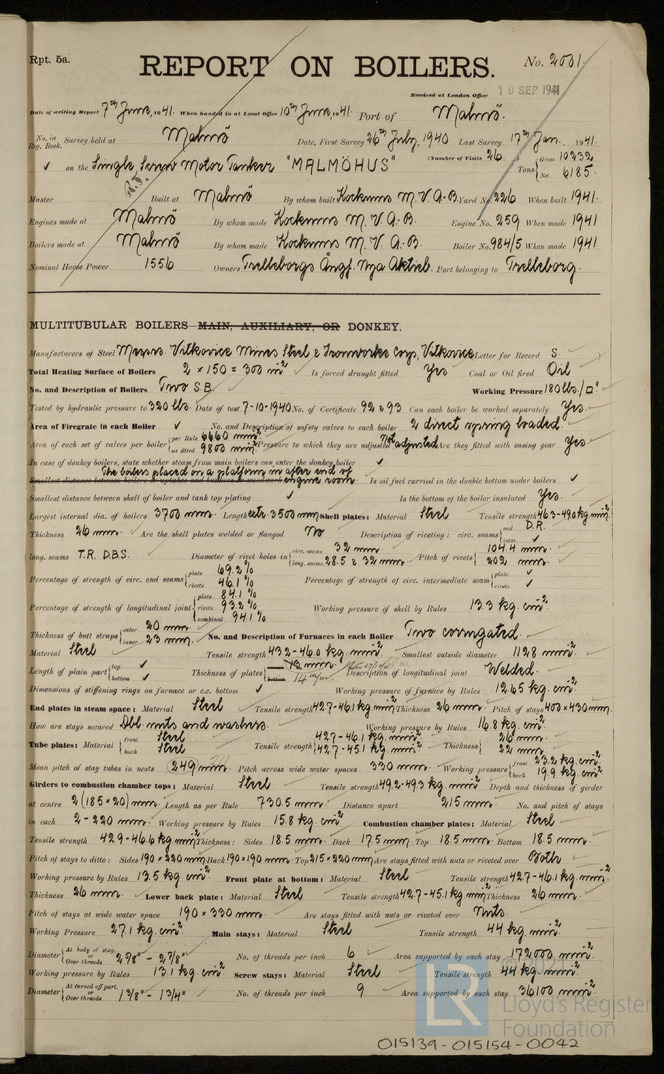 Rpt. 5a.
REPORT ON BOILERS.
No. 2001.
Received at London Office 10 SEP 1941
Date of writing Report 7th June, 1941. When handed in at Local Office 10th June, 1941. Port of Malmö.
No. in Reg. Book. Survey held at Malmö Date, First Survey 26th July, 1940 Last Survey 17th Jan. 1941.
(Number of Visits 26.
✓ on the Single Screw Motor Tanker "MALMÖHUS" Tons { Gross 10232 Net 6185.
Master Built at Malmö By whom built Kockums M.V.A-B. Yard No. 226 When built 1941.
Engines made at Malmö By whom made Kockums M.V.A-B. Engine No. 259 When made 1941
Boilers made at Malmö By whom made Kockums M.V.A-B. Boiler No. 984/5 When made 1941
Nominal Horse Power 1556 Owners Trelleborgs Ångf. Nya Aktieb. Port belonging to Trelleborg.
MULTITUBULAR BOILERS MAIN, AUXILIARY, OR DONKEY.
Manufacturers of Steel Messrs. Vitkovice Mines Steel & Ironworks Corp, Vitkovice Letter for Record S.
Total Heating Surface of Boilers 2 × 150 = 300 m² Is forced draught fitted Yes Coal or Oil fired Oil
No. and Description of Boilers Two S.B. Working Pressure 180 lbs./□"
Tested by hydraulic pressure to 320 lbs. Date of test 7-10-1940 No. of Certificate 92 & 93 Can each boiler be worked separately Yes.
Area of Firegrate in each Boiler ✓ No. and Description of safety valves to each boiler 2 direct spring loaded.
Area of each set of valves per boiler { per Rule 6660 mm² as fitted 9800 mm² Pressure to which they are adjusted Not adjusted Are they fitted with easing gear Yes
In case of donkey boilers, state whether steam from main boilers can enter the donkey boiler ✓
The boilers placed on a platform in after end of
Smallest distance between boilers or uptakes and bunkers or woodwork engine room Is oil fuel carried in the double bottom under boilers ✓
Smallest distance between shell of boiler and tank top plating ✓ Is the bottom of the boiler insulated Yes.
Largest internal dia. of boilers 3700 mm. Length extr. 3500 mm Shell plates: Material Steel Tensile strength 46.3-49.0 kg/mm²
Thickness 26 mm. Are the shell plates welded or flanged No Description of riveting: circ. seams { end D.R. inter. ✓
long. seams T.R. D.B.S. Diameter of rivet holes in { circ. seams 32 mm. long. seams 28.5 & 32 mm. Pitch of rivets { 104.4 mm. 202 mm.
Percentage of strength of circ. end seams { plate 69.2% rivets 46.1% Percentage of strength of circ. intermediate seam { plate ✓ rivets ✓
Percentage of strength of longitudinal joint { plate 84.1% rivets 93.2% combined 94.1% Working pressure of shell by Rules 13.3 kg cm²
Thickness of butt straps { outer 20 mm. inner 23 mm. No. and Description of Furnaces in each Boiler Two corrugated.
Material Steel Tensile strength 43.2-46.0 kg. mm² Smallest outside diameter 1128 mm.
Length of plain part { top ✓ bottom ✓ Thickness of plates { 13 mm. bottom 14 mm Description of longitudinal joint Welded.
Dimensions of stiffening rings on furnace or c.c. bottom ✓ Working pressure of furnace by Rules 12.65 kg. cm²
End plates in steam space: Material Steel Tensile strength 42.7-46.1 kg mm² Thickness 26 mm. Pitch of stays 400 × 430 mm.
How are stays secured Dbl. nuts and washers. Working pressure by Rules 16.8 kg. cm²
Tube plates: Material { front Steel back Steel Tensile strength { 42.7-46.1 kg. mm² 42.7-45.1 kg. mm² Thickness { 26 mm. 22 mm.
Mean pitch of stay tubes in nests (249 mm. Pitch across wide water spaces 330 mm. Working pressure { front 23.2 kg. cm² back 19.9 kg. cm²
Girders to combustion chamber tops: Material Steel Tensile strength 49.2-49.3 kg. mm² Depth and thickness of girder
at centre 2 (185 × 20) mm. Length as per Rule 730.5 mm. Distance apart 215 mm. No. and pitch of stays
in each 2 - 220 mm. Working pressure by Rules 15.8 kg. cm² Combustion chamber plates: Material Steel
Tensile strength 42.9-46.6 kg. mm² Thickness: Sides 18.5 mm. Back 17.5 mm. Top 18.5 mm. Bottom 18.5 mm.
Pitch of stays to ditto: Sides 190 × 220 mm. Back 190 × 190 mm. Top 215 × 220 mm. Are stays fitted with nuts or riveted over Both
Working pressure by Rules 13.5 kg. cm² Front plate at bottom: Material Steel Tensile strength 42.7-46.1 kg. mm²
Thickness 26 mm. Lower back plate: Material Steel Tensile strength 42.7-45.1 kg. mm² Thickness 26 mm.
Pitch of stays at wide water space 190 × 330 mm. Are stays fitted with nuts or riveted over Nuts.
Working Pressure 27.1 kg. cm² Main stays: Material Steel Tensile strength 44 kg. mm²
Diameter { At body of stay, or Over threads 2⅞" - 2⅞" No. of threads per inch 6 Area supported by each stay 172000 mm²
Working pressure by Rules 13.1 kg. cm² Screw stays: Material Steel Tensile strength 44 kg. mm²
Diameter { At turned off part, or Over threads 1⅝" - 1¾" No. of threads per inch 9 Area supported by each stay 36100 mm²
Lloyd's Register Foundation
015139-015154-0042